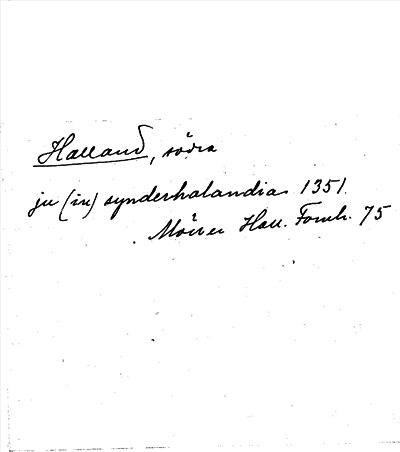 Halland, södra
ju (in) synderhalandia 1351.
Mörner Hall. Fornh. 75